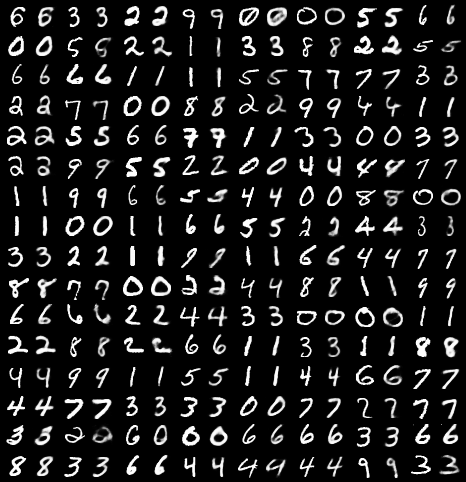 6 6 3 3 2 2 9 9 0 0 0 0 5 5 6 6
0 0 5 5 2 2 1 1 3 3 8 8 2 2 5 5
6 6 6 6 1 1 1 1 5 5 7 7 7 7 3 3
2 2 7 7 0 0 8 8 2 2 9 9 4 4 1 1
2 2 5 5 6 6 7 7 1 1 3 3 0 0 3 3
2 2 9 9 5 5 2 2 0 0 4 4 4 4 7 7
1 1 9 9 6 6 5 5 4 4 0 0 8 8 0 0
1 1 0 0 1 1 6 6 5 5 2 2 4 4 3 3
3 3 2 2 1 1 9 9 1 1 6 6 4 4 7 7
8 8 7 7 0 0 2 2 4 4 8 8 1 1 9 9
6 6 6 6 2 2 4 4 3 3 0 0 0 0 1 1
2 2 8 8 2 2 6 6 1 1 3 3 1 1 8 8
4 4 9 9 1 1 5 5 1 1 4 4 6 6 7 7
4 4 7 7 3 3 3 3 0 0 7 7 7 7 7 7
3 3 2 0 6 0 0 0 6 6 6 6 3 3 6 6
8 8 3 3 6 6 4 4 4 4 4 4 9 9 3 3